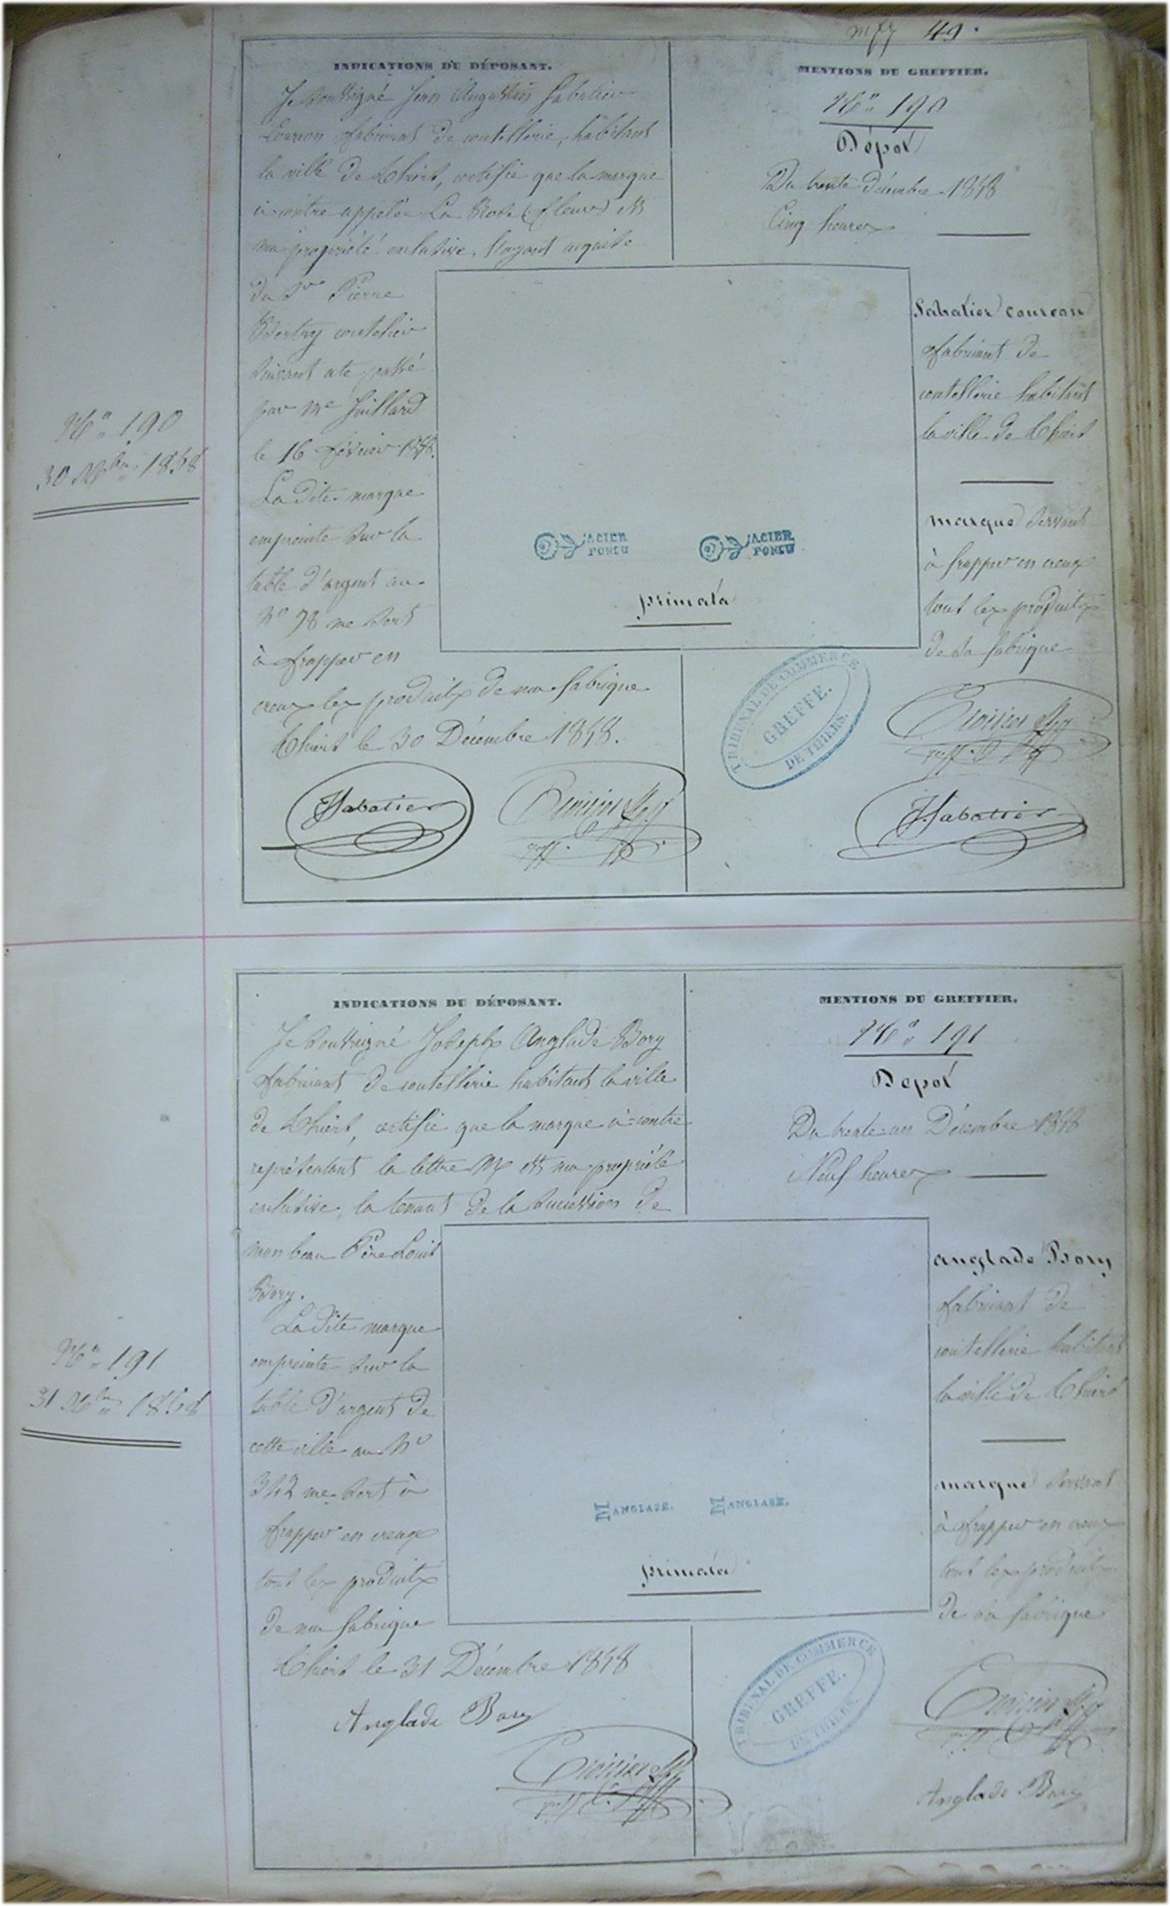 49.
INDICATIONS DU DÉPOSANT.
Je soussigné Jean Augustin Sabatier
fabricant de coutellerie, habitant
la ville de Thiers, certifie que la marque
ci-contre appelée La Rose (fleur) est
ma propriété exclusive, l'ayant acquise
du Sr Pierre
coutelier
suivant acte passé
par Me
le 16 février
La dite marque
empreinte sur la
table d'argent au
No 98 me sert
à frapper en
creux les produits de ma fabrique
Thiers le 30 Décembre 1858.
Sabatier
MENTIONS DU GREFFIER.
No 190
Dépot
Du trente Décembre 1858
Cinq heures
Sabatier
fabricant de
coutellerie habitant
la ville de Thiers
marque servant
à frapper en creux
tout les produits
de sa fabrique
Sabatier
ACIER
FONDU
ACIER
FONDU
primata
TRIBUNAL DE COMMERCE
GREFFE.
DE THIERS.
No 190
30 1858
INDICATIONS DU DÉPOSANT.
Je soussigné Joseph Anglade Bory
fabricant de coutellerie habitant la ville
de Thiers, certifie que la marque ci-contre
représentant la lettre M est ma propriété
exclusive, la tenant de la succession de
mon beau Père Louis
Bory.
La dite marque
empreinte sur la
table d'argent de
cette ville au No
me sert à
frapper en creux
tout les produits
de ma fabrique
Thiers le 31 Décembre 1858
Anglade Bory
MENTIONS DU GREFFIER.
No 191
Depot
Du trente-un Décembre 1858
Neuf heures
anglade Bory
fabricant de
coutellerie habitant
la ville de Thiers
marque servant
à frapper en creux
tout les produits
de sa fabrique
Anglade Bory
M ANGLADE.
M ANGLADE.
primata
TRIBUNAL DE COMMERCE
GREFFE.
DE THIERS.
No 191
31 1858